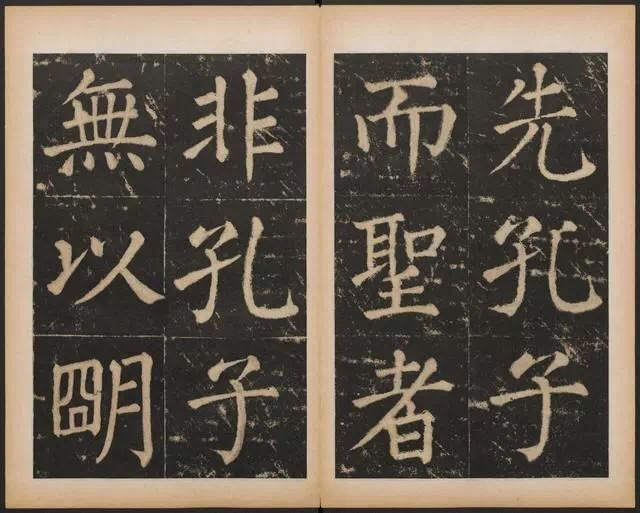 先孔子
而聖者
非孔子
無以明